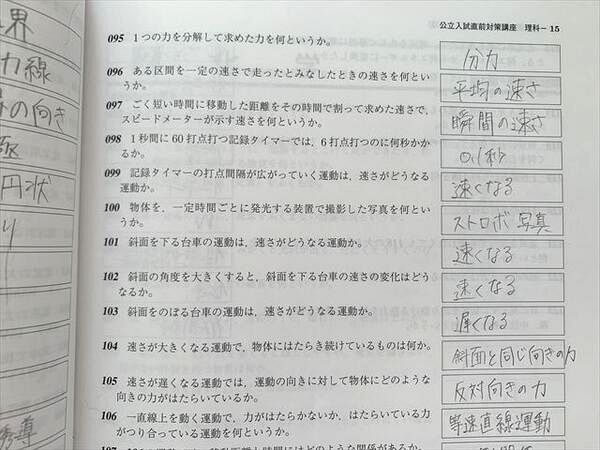 公立入試直前対策講座 理科－15
界
力線
の向き
極
円状
り
誘導
095 1つの力を分解して求めた力を何というか。
分力
096 ある区間を一定の速さで走ったとみなしたときの速さを何とい
うか。
平均の速さ
097 ごく短い時間に移動した距離をその時間で割って求めた速さで、
スピードメーターが示す速さを何というか。
瞬間の速さ
098 1秒間に60打点打つ記録タイマーでは、6打点打つのに何秒かか
るか。
0.1秒
099 記録タイマーの打点間隔が広がっていく運動は、速さがどうなる
運動か。
速くなる
100 物体を、一定時間ごとに発光する装置で撮影した写真を何とい
うか。
ストロボ写真
101 斜面を下る台車の運動は、速さがどうなる運動か。
速くなる
102 斜面の角度を大きくすると、斜面を下る台車の速さの変化はどう
なるか。
速くなる
103 斜面をのぼる台車の運動は、速さがどうなる運動か。
遅くなる
104 速さが大きくなる運動で、物体にはたらき続けているものは何か。
斜面と同じ向きの力
105 速さが遅くなる運動では、運動の向きに対して物体にどのような
向きの力がはたらいているか。
反対向きの力
106 一直線上を動く運動で、力がはたらかないか、はたらいている力
がつり合っている運動を何というか。
等速直線運動